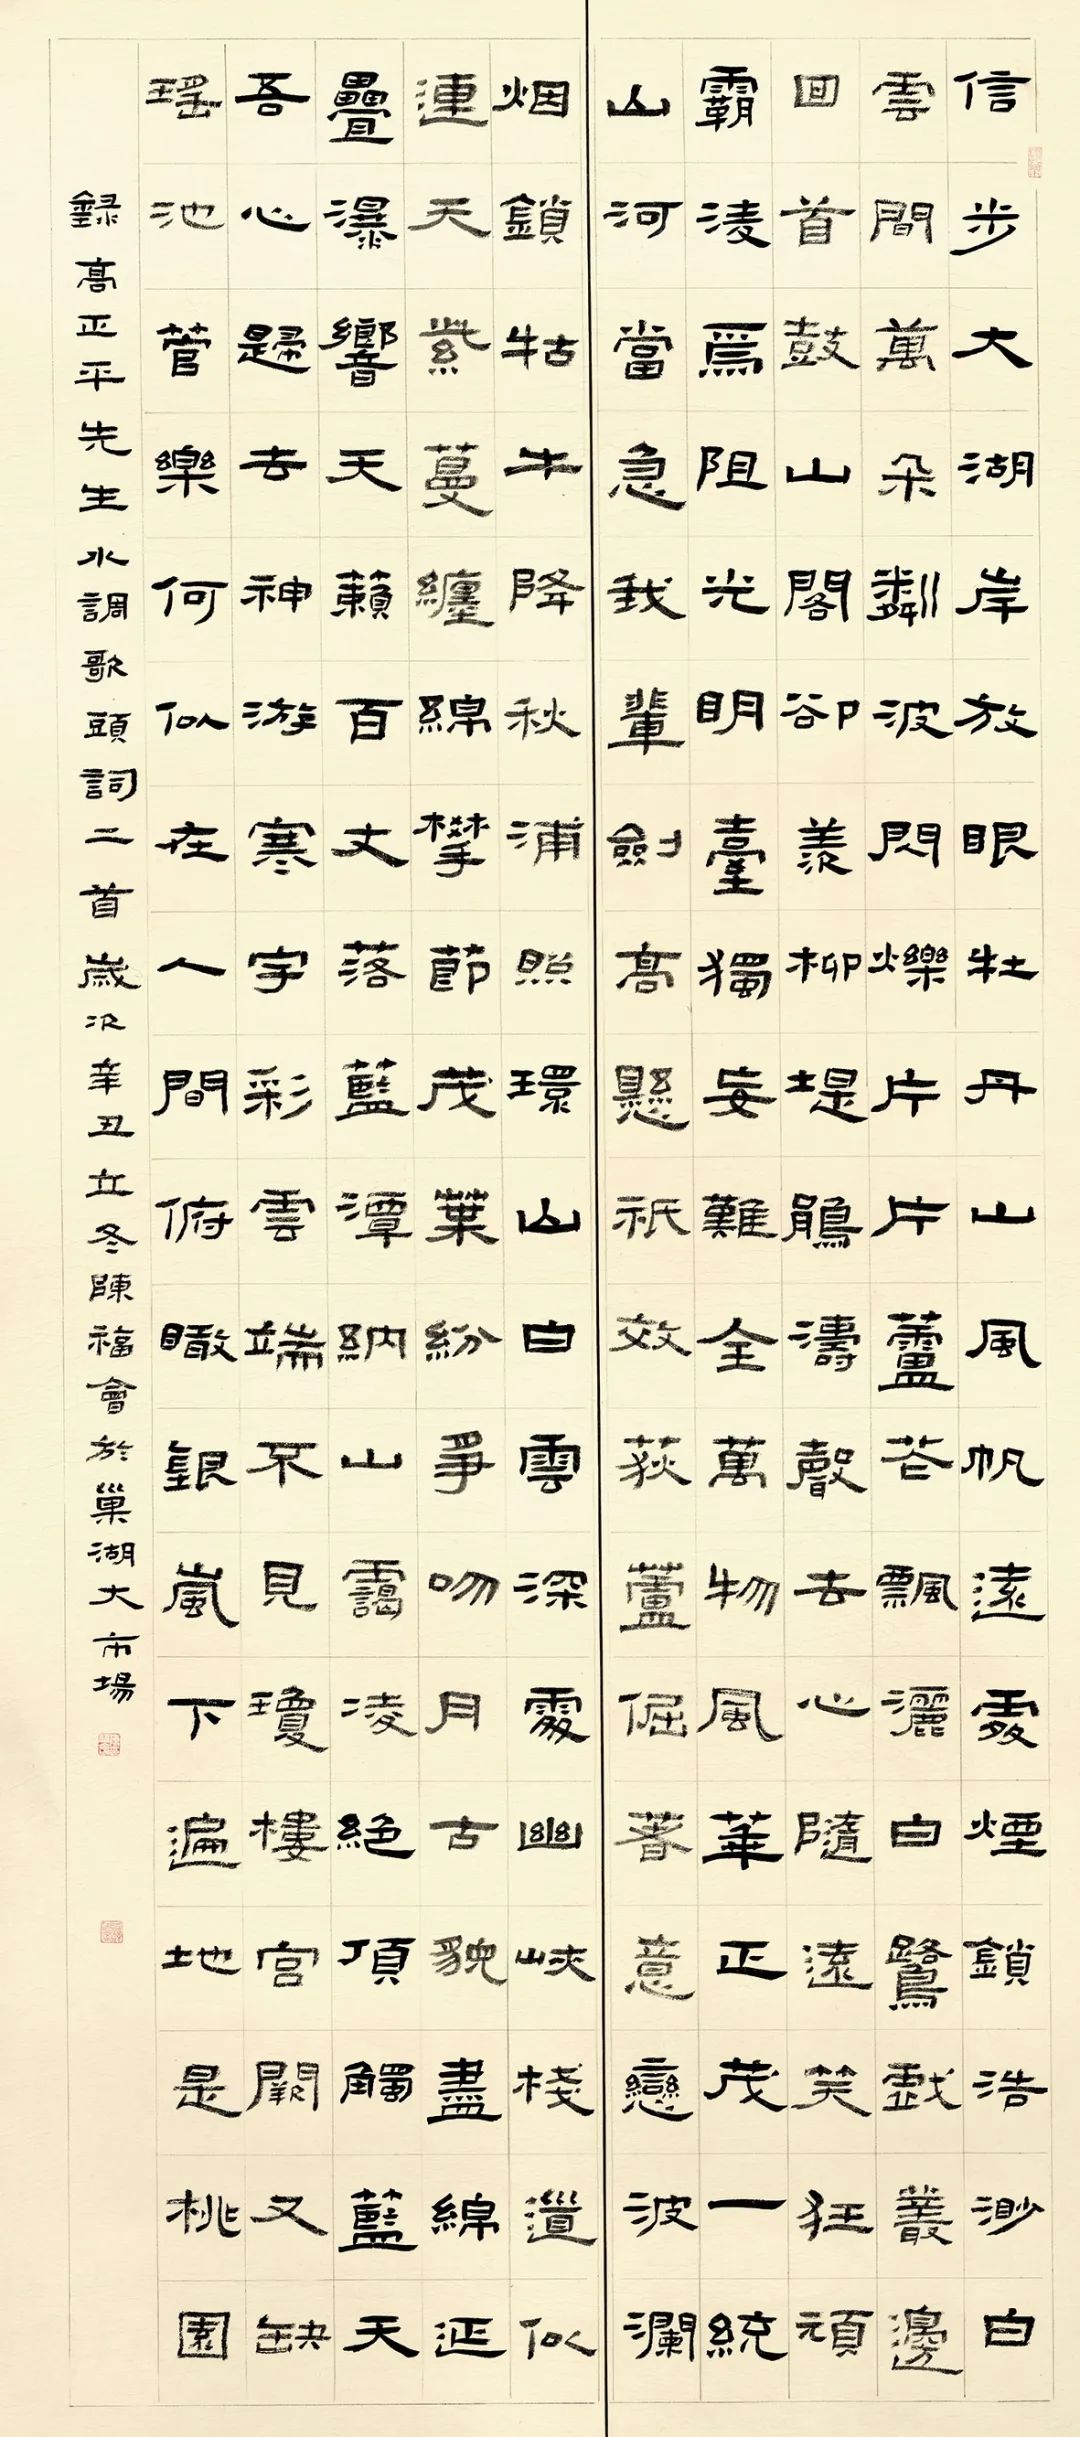 信步大湖岸放眼牡丹山風帆遠處煙鎖浩渺白
雲間萬朵粼波閃爍片片蘆花飄灑白鷺戲叢邊
回首鼓山閣卻羨柳堤鵑濤聲去心隨遠笑狂頑
霸淩爲阻光明臺獨妄難全萬物風華正茂一統
山河當急我輩劍高懸祇效荻蘆倔著意戀波瀾
烟鎖牯牛降秋浦照環山白雲深處幽峽棧道似
連天紫蔓纏綿攀節茂葉紛爭吻月古貌盡綿延
疊瀑響天籟百丈落藍潭納山靄凌絕頂觸藍天
吾心歸去神游寒宇彩雲端不見瓊樓宮闕又缺
瑤池管樂何似在人間俯瞰銀嵐下遍地是桃園
錄高正平先生水調歌頭詞二首歲次辛丑立冬陳福會於巢湖大市場